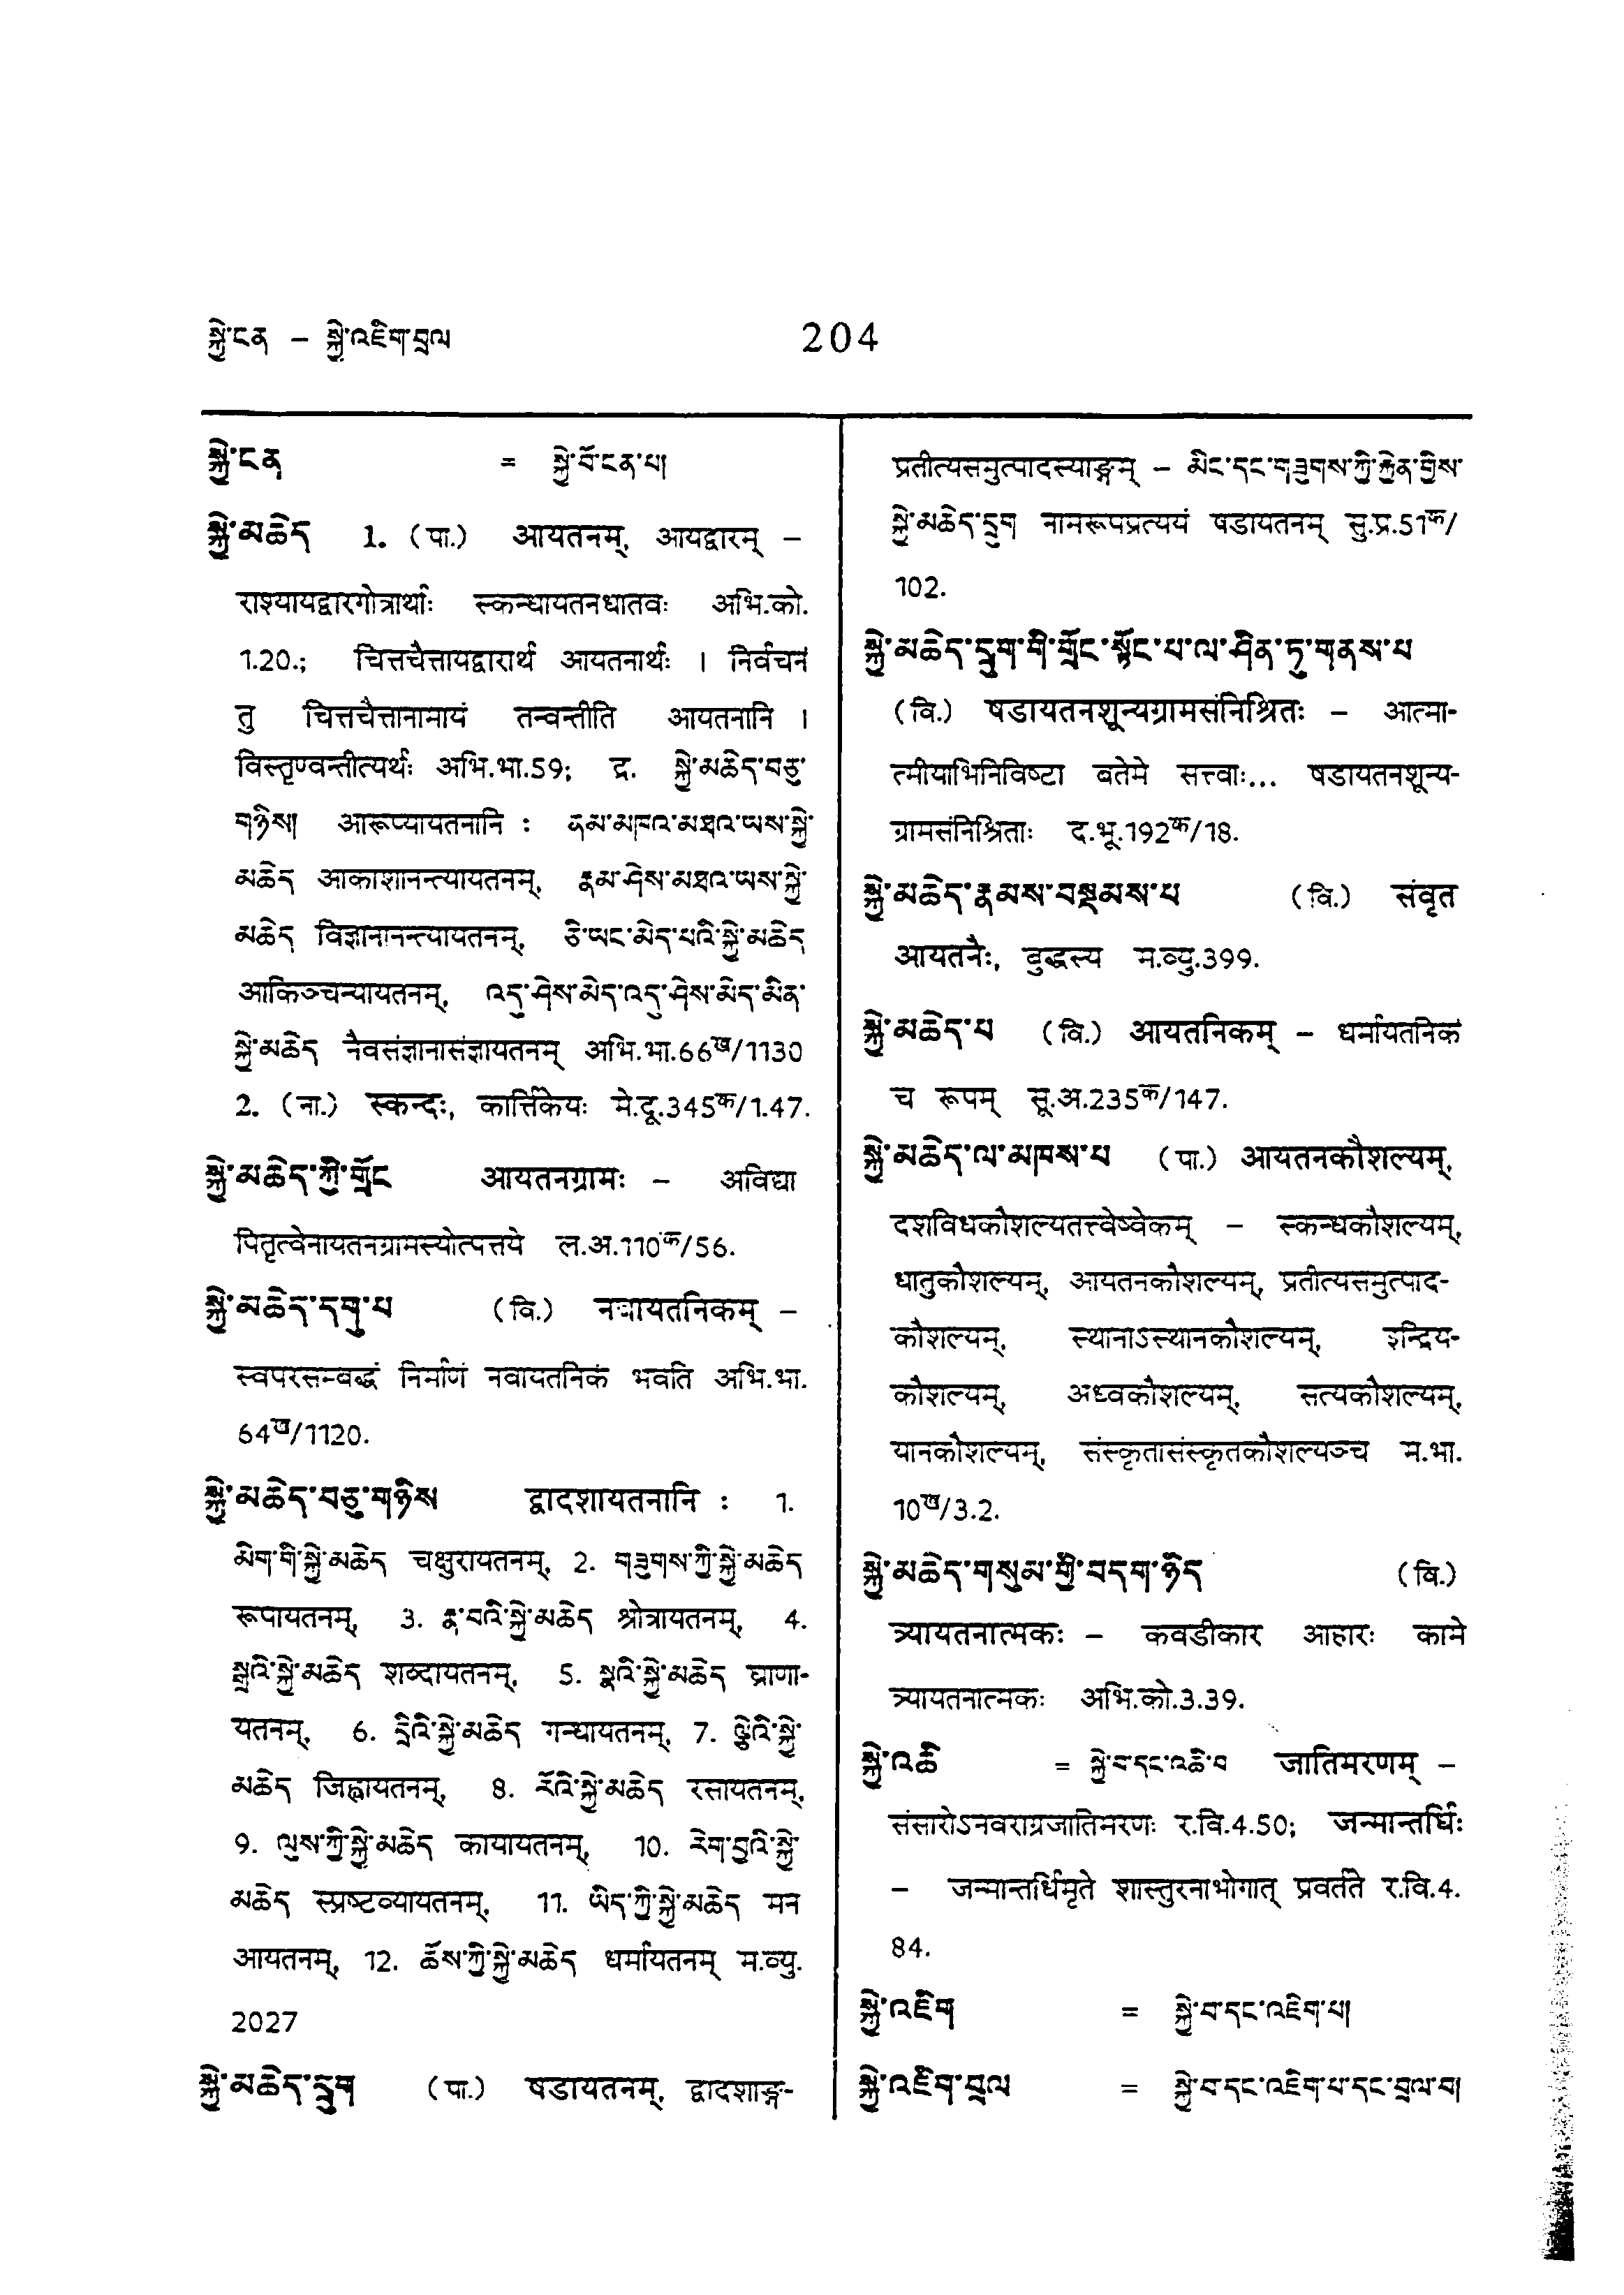 སྐྱེ་ངན – སྐྱེ་འཇིག་བྲལ
204
སྐྱེ་ངན = སྐྱེ་བོ་ངན་པ།
སྐྱེ་མཆེད 1. (पा.) आयतनम्, आयद्वारम् –
राश्यायद्वारगोत्रार्थाः स्कन्धायतनधातवः अभि.को.
1.20.; चित्तचैत्तायद्वारार्थ आयतनार्थः । निर्वचनं
तु चित्तचैत्तानामायं तन्वन्तीति आयतनानि ।
विस्तृण्वन्तीत्यर्थः अभि.भा.59; द्र. སྐྱེ་མཆེད་བཅུ་
གཉིས། आरूप्यायतनानि : ནམ་མཁའ་མཐའ་ཡས་སྐྱེ་
མཆེད आकाशानन्त्यायतनम्, རྣམ་ཤེས་མཐའ་ཡས་སྐྱེ་
མཆེད विज्ञानानन्त्यायतनम्, ཅི་ཡང་མེད་པའི་སྐྱེ་མཆེད
आकिञ्चन्यायतनम्, འདུ་ཤེས་མེད་འདུ་ཤེས་མེད་མིན་
སྐྱེ་མཆེད नैवसंज्ञानासंज्ञायतनम् अभि.भा.66ख/1130
2. (ना.) स्कन्दः, कार्त्तिकेयः मे.दू.345क/1.47.
སྐྱེ་མཆེད་ཀྱི་གྲོང आयतनग्रामः – अविद्या
पितृत्वेनायतनग्रामस्योत्पत्तये ल.अ.110क/56.
སྐྱེ་མཆེད་དགུ་པ (वि.) नवायतनिकम् –
स्वपरसम्बद्धं निर्माणं नवायतनिकं भवति अभि.भा.
64ख/1120.
སྐྱེ་མཆེད་བཅུ་གཉིས द्वादशायतनानि : 1.
མིག་གི་སྐྱེ་མཆེད चक्षुरायतनम्, 2. གཟུགས་ཀྱི་སྐྱེ་མཆེད
रूपायतनम्, 3. རྣ་བའི་སྐྱེ་མཆེད श्रोत्रायतनम्, 4.
སྒྲའི་སྐྱེ་མཆེད शब्दायतनम्, 5. སྣའི་སྐྱེ་མཆེད घ्राणा-
यतनम्, 6. དྲིའི་སྐྱེ་མཆེད गन्धायतनम्, 7. ལྕེའི་སྐྱེ་
མཆེད जिह्वायतनम्, 8. རོའི་སྐྱེ་མཆེད रसायतनम्,
9. ལུས་ཀྱི་སྐྱེ་མཆེད कायायतनम्, 10. རེག་བྱའི་སྐྱེ་
མཆེད स्प्रष्टव्यायतनम्, 11. ཡིད་ཀྱི་སྐྱེ་མཆེད मन
आयतनम्, 12. ཆོས་ཀྱི་སྐྱེ་མཆེད धर्मायतनम् म.व्यु.
2027
སྐྱེ་མཆེད་དྲུག (पा.) षडायतनम्, द्वादशाङ्ग-
प्रतीत्यसमुत्पादस्याङ्गम् – མིང་དང་གཟུགས་ཀྱི་རྐྱེན་གྱིས་
སྐྱེ་མཆེད་དྲུག नामरूपप्रत्ययं षडायतनम् सु.प्र.51क/
102.
སྐྱེ་མཆེད་དྲུག་གི་གྲོང་སྟོང་པ་ལ་ཤིན་ཏུ་གནས་པ
(वि.) षडायतनशून्यग्रामसंनिश्रितः – आत्मा-
त्मीयाभिनिविष्टा बतेमे सत्त्वाः... षडायतनशून्य-
ग्रामसंनिश्रिताः द.भू.192क/18.
སྐྱེ་མཆེད་རྣམས་བསྡམས་པ (वि.) संवृत
आयतनैः, बुद्धस्य म.व्यु.399.
སྐྱེ་མཆེད་པ (वि.) आयतनिकम् – धर्मायतनिकं
च रूपम् सू.अ.235क/147.
སྐྱེ་མཆེད་ལ་མཁས་པ (पा.) आयतनकौशल्यम्,
दशविधकौशल्यतत्त्वेष्वेकम् – स्कन्धकौशल्यम्,
धातुकौशल्यम्, आयतनकौशल्यम्, प्रतीत्यसमुत्पाद-
कौशल्यम्, स्थानाऽस्थानकौशल्यम्, इन्द्रिय-
कौशल्यम्, अध्वकौशल्यम्, सत्यकौशल्यम्,
यानकौशल्यम्, संस्कृतासंस्कृतकौशल्यञ्च म.भा.
10ख/3.2.
སྐྱེ་མཆེད་གསུམ་གྱི་བདག་ཉིད (वि.)
त्र्यायतनात्मकः – कवडीकार आहारः कामे
त्र्यायतनात्मकः अभि.को.3.39.
སྐྱེ་འཆི = སྐྱེ་བ་དང་འཆི་བ जातिमरणम् –
संसारोऽनवराग्रजातिमरणः र.वि.4.50; जन्मान्तर्धिः
– जन्मान्तर्धिमृते शास्तुरनाभोगात् प्रवर्तते र.वि.4.
84.
སྐྱེ་འཇིག = སྐྱེ་བ་དང་འཇིག་པ།
སྐྱེ་འཇིག་བྲལ = སྐྱེ་བ་དང་འཇིག་པ་དང་བྲལ་བ།